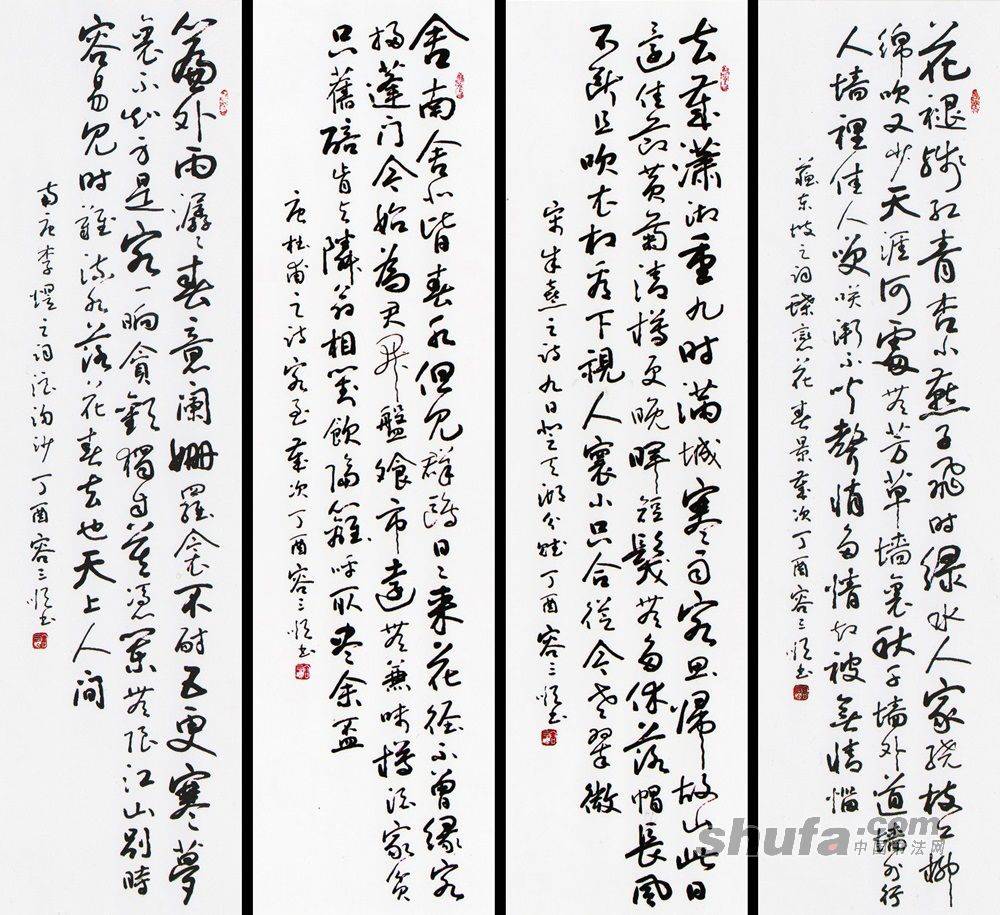 花褪殘红青杏小燕子飛时绿水人家绕枝上柳
绵吹又少天涯何處無芳草墙裏秋千墙外道墙外行
人墙裡佳人笑笑渐不闻聲悄多情却被無情惱
蘇东坡之词蝶恋花春景歲次丁酉容三恒书
去歲瀟湘重九时满城寒雨客思歸故山此日
還佳节黄菊清樽更晚暉短髮無多休落帽長风
不断且吹衣相看下視人寰小只合從今老翠微
宋朱熹之诗九日登天湖分赋丁酉容三恒书
舍南舍北皆春水但见群鷗日日来花徑不曾缘客
掃蓬门今始為君开盤飧市遠無兼味樽酒家贫
只舊醅肯与隣翁相對飲隔籬呼取尽余盃
唐杜甫之诗客至歲次丁酉容三恒书
簾外雨潺潺春意阑姗羅衾不耐五更寒夢
裏不知身是客一晌貪歡獨自莫凭阑無限江山别時
容易见时難流水落花春去也天上人间
南唐李煜之词浪淘沙丁酉容三恒书
shufa.com
中国书法网